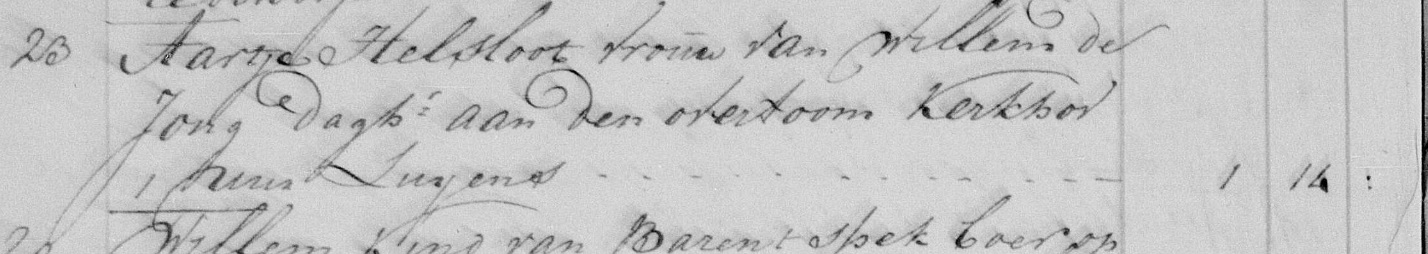 23 Aartje Helsloot vrouw van Willem de
Jong dagh:r aan den overtoom Kerkhov
1 huur Luyens - - - - - - - - - 1 14 :
Willem kind van Barent Spek boer op